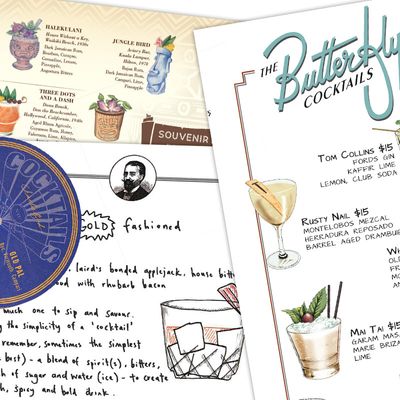 HALEKULANI
House Without a Key,
Waikiki Beach, 1930s
Pineapple,
Angostura Bitters
JUNGLE BIRD
Aviary Bar,
Kuala Lumpur
Hilton, 1978
Bajan Rum,
Dark Jamaican Rum,
Campari, Lime,
Pineapple
THREE DOTS
AND A DASH
Donn Beach,
Don the Beachcomber,
Hollywood, California, 1940s
Aged Rhum Agricole,
Guyanese Rum, Honey,
Falernum, Lime, Allspice,
SOUVENIR
COCKTAILS
OLD PAL
GOLD} fashioned
laird's bonded applejack, house bitt
od with rhubarb bacon
much one to sip and savour.
g the simplicity of a 'cocktail'
remember, sometimes the simplest
best) - a blend of spirit(s), bitters,
h of sugar and water (ice) - to create
h, spicy and bold drink.
THE
Butterfly
COCKTAILS
TOM COLLINS $15
FORDS GIN
KAFFIR LIME
LEMON, CLUB SODA
RUSTY NAIL $15
MONTELOBOS MEZCAL
HERRADURA REPOSADO
BARREL AGED DRAMBUI
WH
OLD
FR
MO
AN
MAI TAI $15
GARAM MAS
MARIE BRIZA
LIME